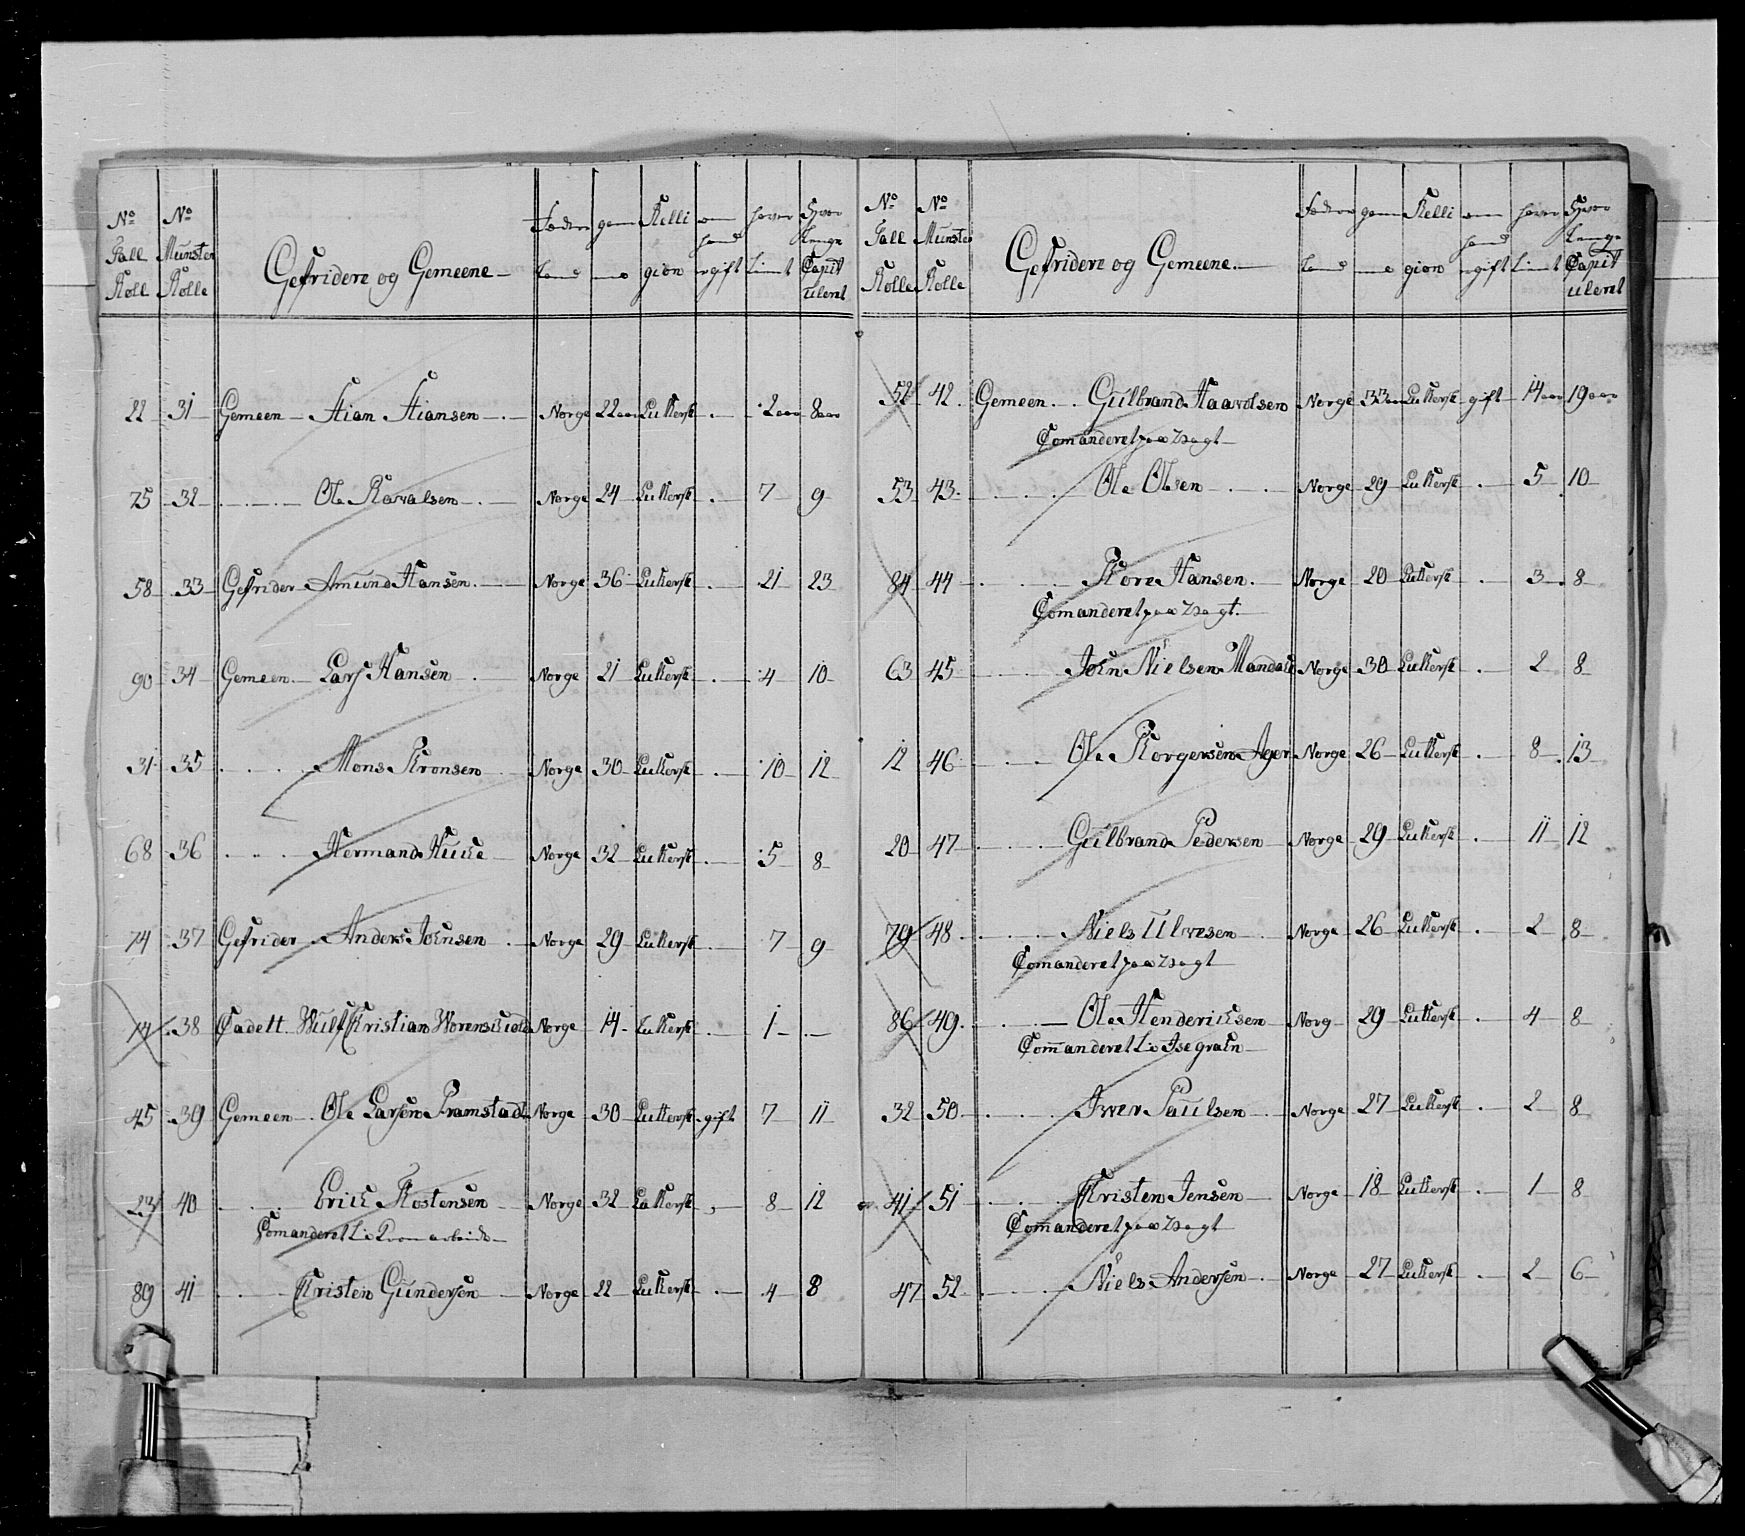 No Tall Roll | No Munster Rolle | Gefridere og Gemeene | Føde Land | gam | Relli gion | om hand er gift | haver tint | Hvor Lenge Capit uleret
22 31 Gemeen Norge 22 aar Luthersk 2 aar 8 aar
75 32 Ole Norge 24 Luthersk 7 9
58 33 Gefrider Amund Hansen Norge 36 Luthersk 21 23
90 34 Gemeen Lars Hansen Norge 21 Luthersk 4 10
31 35 Mons Norge 30 Luthersk 10 12
68 36 Hermand Norge 32 Luthersk 5 8
74 37 Gefrider Anders Joensen Norge 29 Luthersk 7 9
14 38 Cadett Wulf Kristian Norge 14 Luthersk 1
45 39 Gemeen Ole Larsen Norge 30 Luthersk gift 7 11
23 40 Erick Norge 32 Luthersk 8 12
Comanderet
89 41 Kristen Gundersen Norge 22 Luthersk 4 8
No Tall Rolle | No Munster Rolle | Gefridere og Gemeene | Føde Land | gam | Relli gion | om hand er gift | haver tint | Hvor Lenge Capit uleret
52 42 Gemeen Gulbrand Norge 33 aar Luthersk gift 14 aar 19 aar
Comanderet paa
53 43 Ole Olsen Norge 29 Luthersk 5 10
84 44 Tore Hansen Norge 20 Luthersk 3 8
Comanderet paa
63 45 Joen Nielsen Norge 30 Luthersk 2 8
12 46 Ole Torgersen Ager Norge 26 Luthersk 8 13
20 47 Gulbrand Pedersen Norge 29 Luthersk 11 12
79 48 Niels Ulvesen Norge 26 Luthersk 2 8
Comanderet paa
86 49 Ole Hendericksen Norg 29 Luthersk 4 8
Commanderet
32 50 Iwer Paulsen Norge 27 Luthersk 2 8
41 51 Kristen Jensen Norge 18 Luthersk 1 8
Commanderet paa
47 52 Niels Andersen Norge 27 Luthersk 2 6